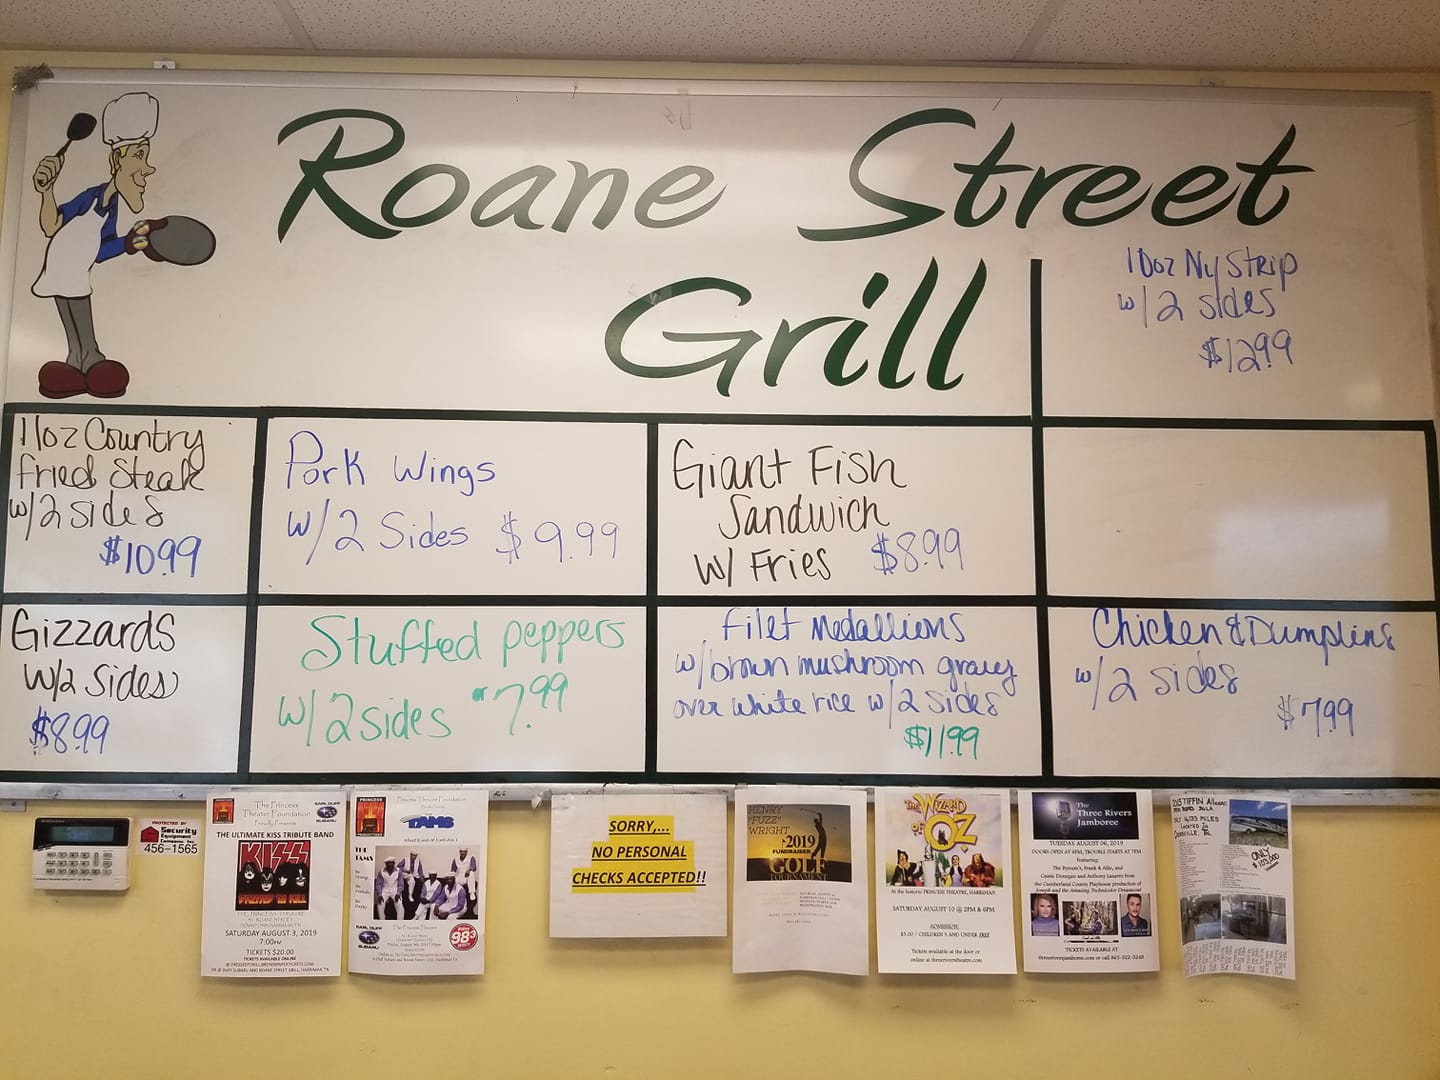 Roane Street
Grill
10oz Ny Strip
w/2 sides
$12.99
11oz Country
fried Steak
w/2 sides
$10.99
Pork Wings
w/2 Sides $9.99
Giant Fish
Sandwich
w/ Fries $8.99
Gizzards
w/2 Sides
$8.99
Stuffed peppers
w/2 sides $7.99
filet medallions
w/brown mushroom gravy
over white rice w/2 sides
$11.99
Chicken & Dumplins
w/2 sides
$7.99
PROTECTED BY
Security
Equipment
Company, Inc.
456-1565
The Princess
Theater Foundation
Proudly Presents
EARL DUFF
SUBARU
THE ULTIMATE KISS TRIBUTE BAND
KISS
DRESSED TO KILL
THE PRINCESS THEATRE
DOWNTOWN HARRIMAN, TN
SATURDAY AUGUST 3, 2019
7:00PM
TICKETS $20.00
TICKETS AVAILABLE ONLINE
Princess Theatre Foundation
TAMS
THE
TAMS
EARL DUFF
SUBARU
The Princess Theatre
98.3
SORRY,...
NO PERSONAL
CHECKS ACCEPTED!!
HENRY
"FUZZ"
WRIGHT
2019
FUNDRAISER
GOLF
TOURNAMENT
The WIZARD
OF OZ
At the historic PRINCESS THEATRE, HARRIMAN
SATURDAY AUGUST 10 @ 2PM & 6PM
ADMISSION:
$5.00 / CHILDREN 5 AND UNDER FREE
Tickets available at the door or
online at threeriverstheatre.com
The
Three Rivers
Jamboree
TUESDAY AUGUST 06, 2019
DOORS OPEN AT 6PM, TROUBLE STARTS AT 7PM
Featuring:
The Byrum's, Frank & Allie, and
Cassie Donegan and Anthony Lazarro from
the Cumberland County Playhouse production of
Joseph and the Amazing Technicolor Dreamcoat
TICKETS AVAILABLE AT
threeriversjamboree.com or call 865-322-3248
2015 TIFFIN Allegro
ONLY
$103,000